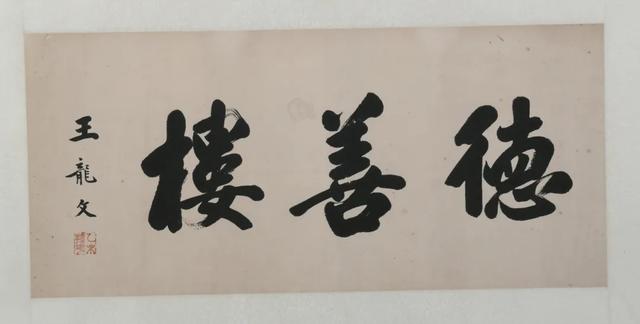 德善樓
王龍文